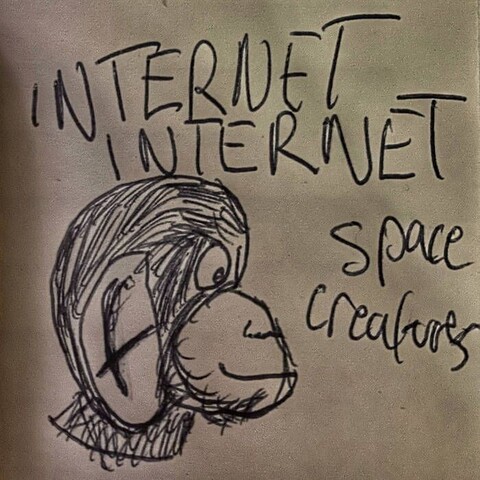 INTERNET
INTERNET
space
creatures